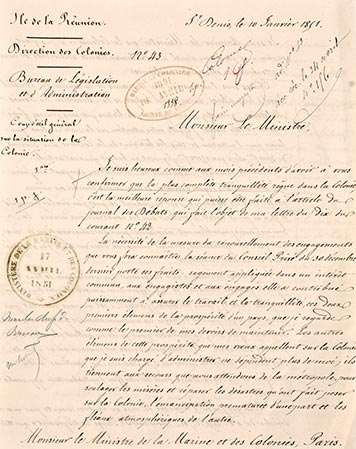 Ile de la Réunion.
St Denis, le 10 Janvier 1851.
Direction des Colonies.
No. 43.
Bureau de Législation
et d'Administration
Coup d'œil général
sur la situation de la
Colonie.
Monsieur le Ministre,
Je suis heureux comme aux mois précédents d'avoir à vous
confirmer que la plus complète tranquillité règne dans la Colonie:
c'est la meilleure réponse qui puisse être faite à l'article du
journal des Débats, qui fait l'objet de ma lettre du Dix du
courant No. 42.
La nécessité de la mesure du renouvellement des engagements
que vous fera connaître la séance du Conseil Privé du 30 décembre
dernier porte ses fruits, sagement appliquée dans un intérêt
commun, aux engagistes et aux engagés elle a contribué
puissamment à assurer le travail et la tranquillité, ces deux
premiers éléments de la prospérité d'un pays, que je regarde
comme le premier de mes devoirs de maintenir. Les autres
éléments de cette prospérité que mes vœux appellent sur la Colonie
que je suis chargé d'administrer ne dépendent plus de moi; ils
tiennent aux secours que nous attendons de la métropole, pour
soulager les misères et réparer les désastres qu'ont fait peser
sur la Colonie, l'émancipation prématurée d'une part et les
fléaux atmosphériques de l'autre.
Monsieur le Ministre de la Marine et des Colonies, Paris.
17
AVRIL
1851